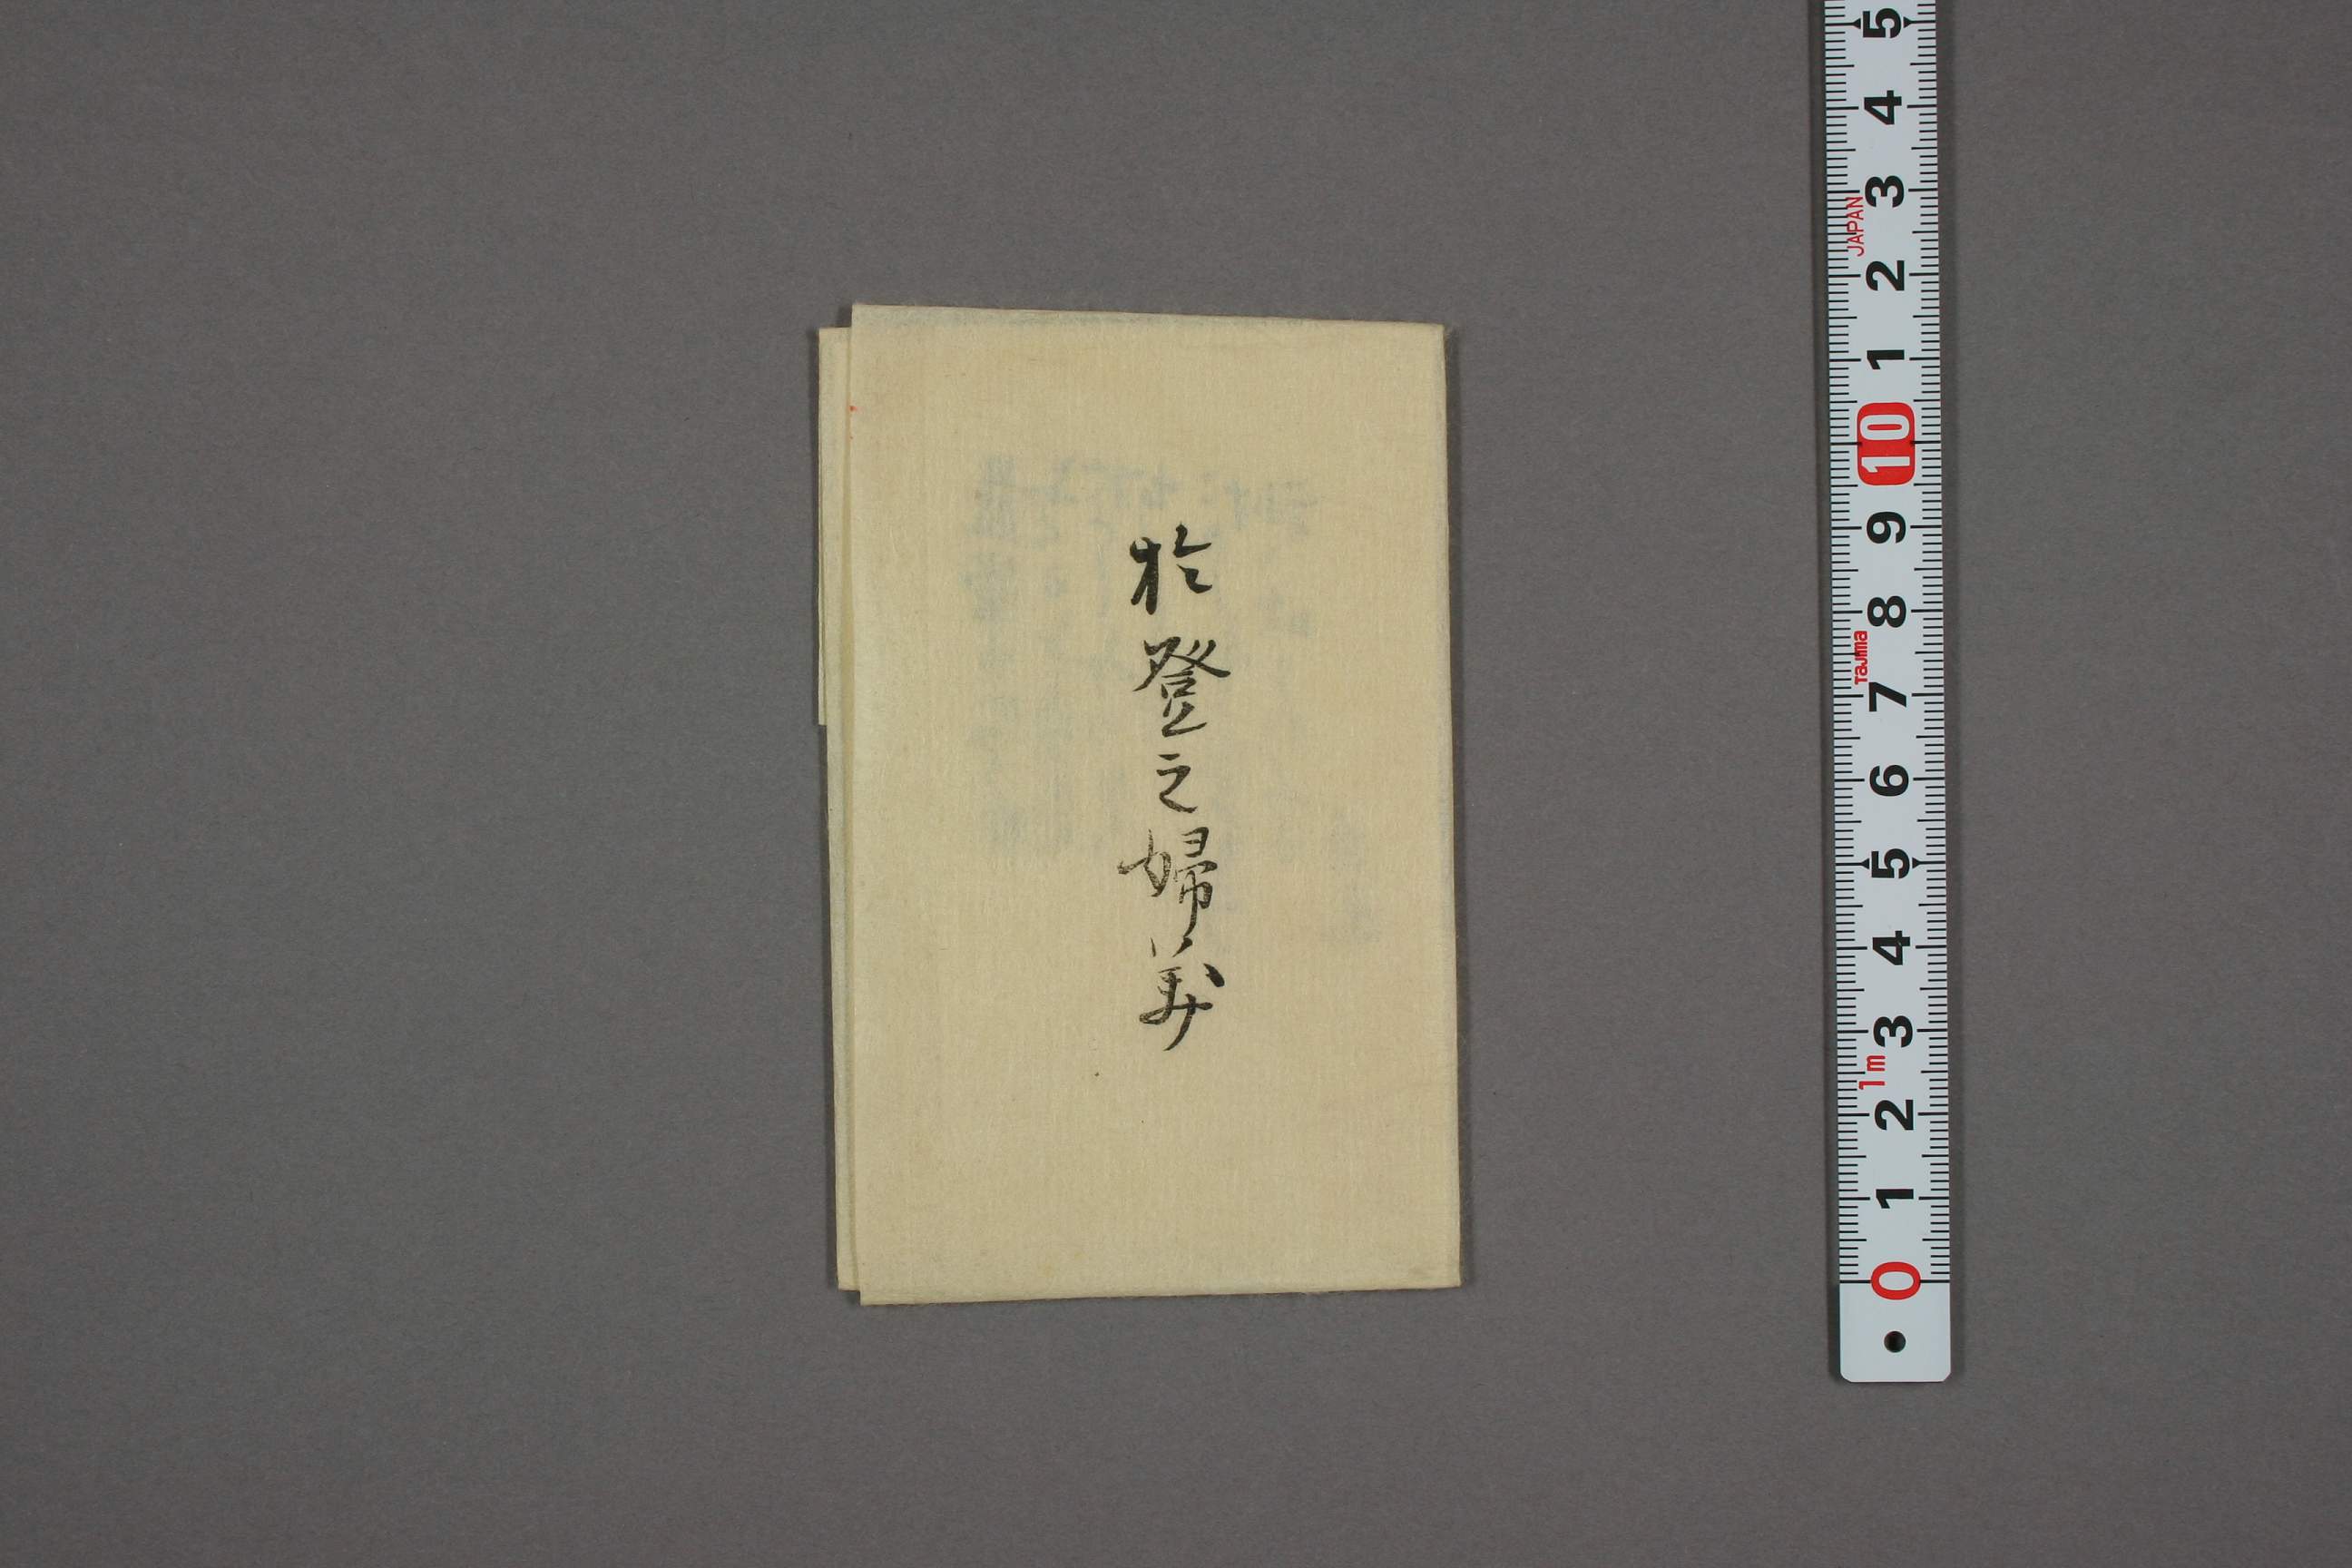 於登之婦美
5
4
3
JAPAN
2
1
10
9
8
Tajima
7
6
5
4
3
1m
2
1
0